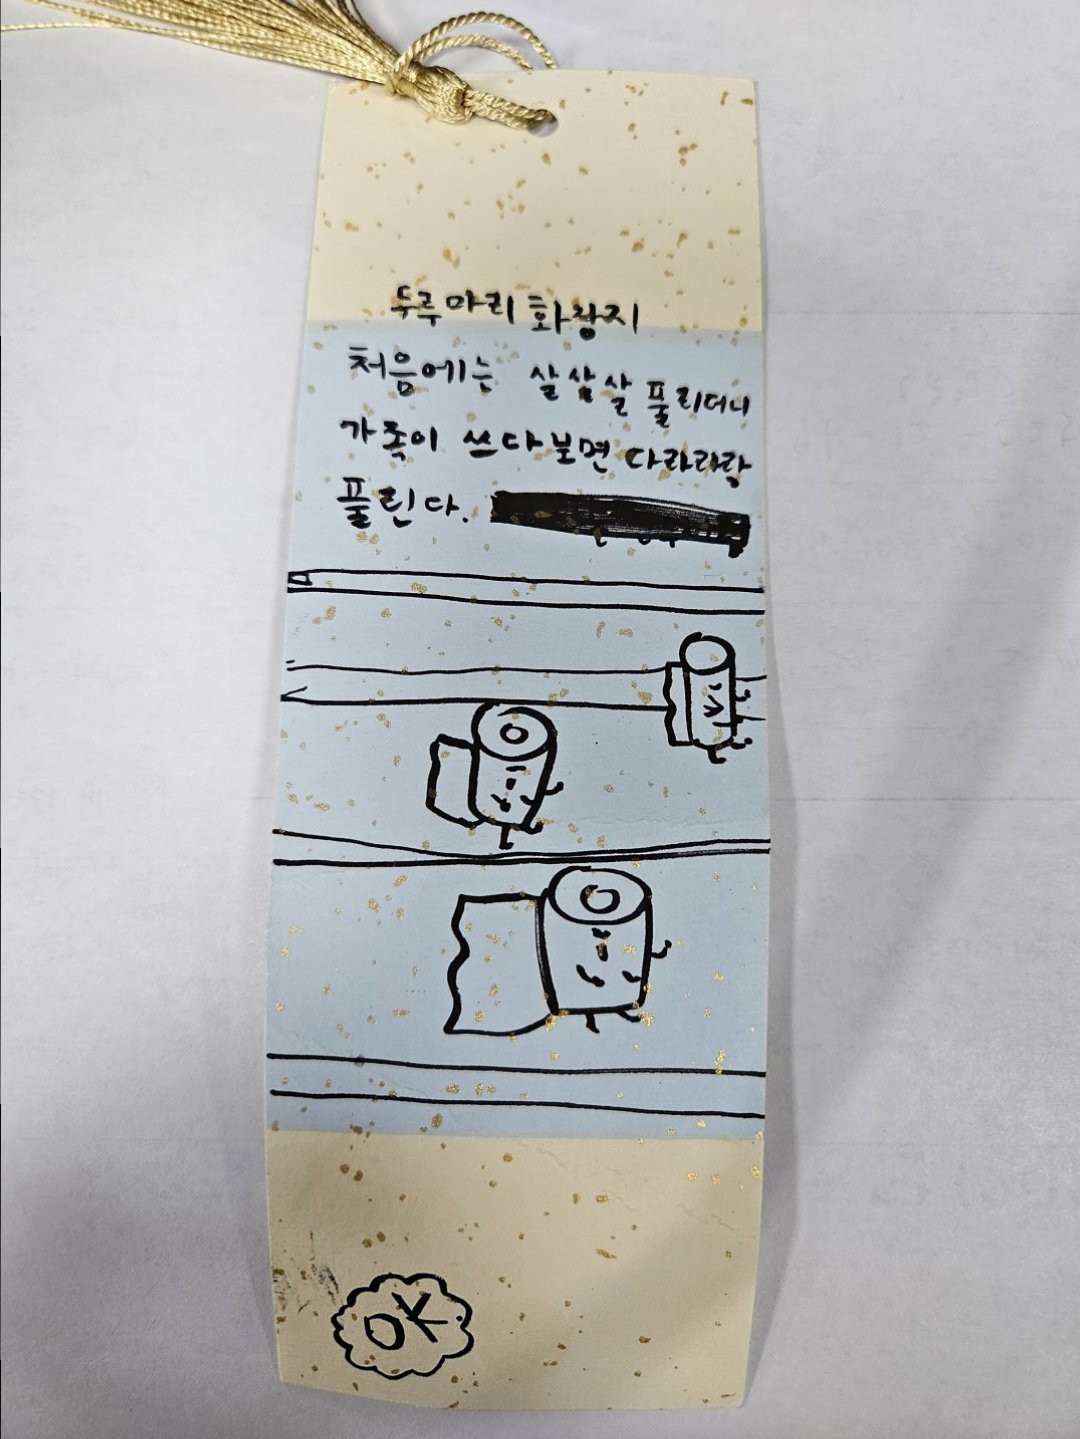 두루마리 화장지
처음에는 살살살 풀리더니
가족이 쓰다보면 다라라락
풀린다.
OK